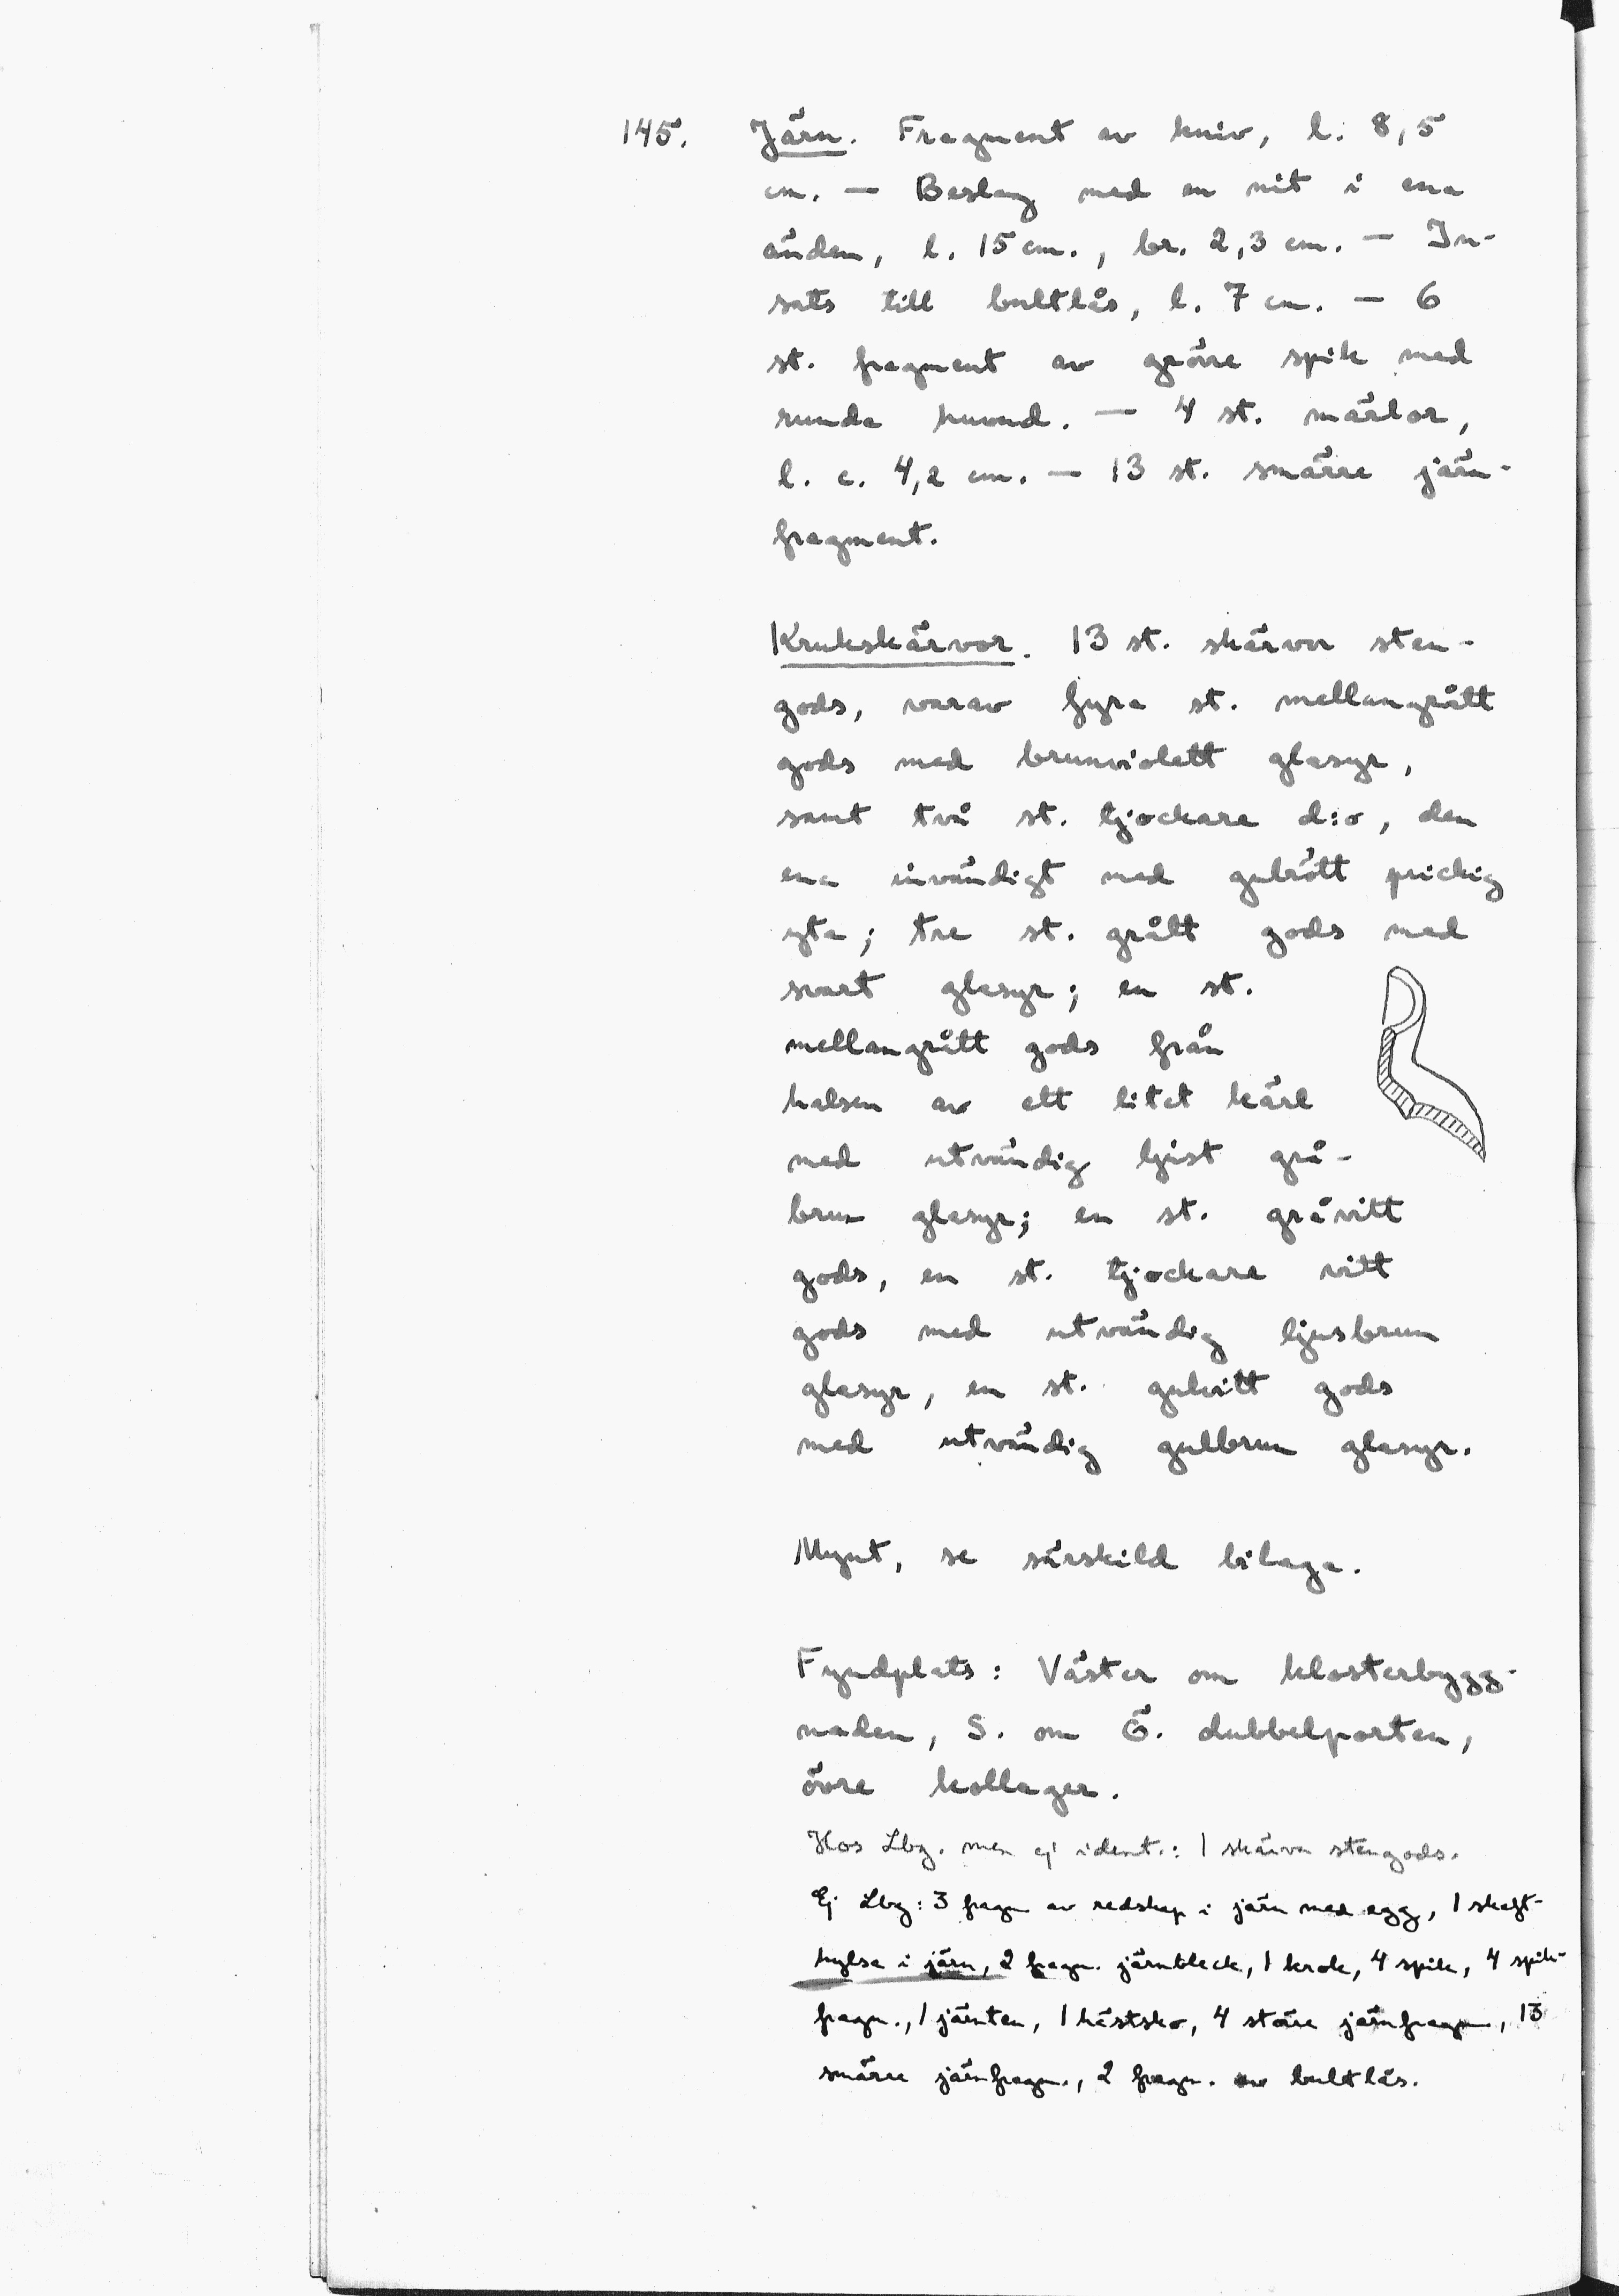 145. Järn. Fragment av kniv, l. 8,5
cm. — Beslag med en nit i ena
änden, l. 15 cm., br. 2,3 cm. — In-
sats till bultlås, l. 7 cm. — 6
st. fragment av grövre spik med
runda huvud. — 4 st. märlor,
l. c. 4,2 cm. — 13 st. smärre järn-
fragment.
Krukskärvor. 13 st. skärvor sten-
gods, varav fyra st. mellangrått
gods med brunviolett glasyr,
samt två st. tjockare d:o, den
ena invändigt med gulrött prickig
yta; tre st. grått gods med
svart glasyr; en st.
mellangrått gods från
halsen av ett litet kärl
med utvändig ljust grå-
brun glasyr; en st. gråvitt
gods, en st. tjockare vitt
gods med utvändig ljusbrun
glasyr, en st. gulvitt gods
med utvändig gulbrun glasyr.
Mynt, se särskild bilaga.
Fyndplats: Väster om klosterbygg-
naden, S. om Ö. dubbelporten,
övre kollager.
Hos Lbg. men ej ident.: 1 skärva stengods.
Ej Lbg: 3 fragm av redskap i järn med egg, 1 skaft-
hylsa i järn, 2 fragm. järnbleck, 1 krok, 4 spik, 4 spik-
fragm., 1 järnten, 1 hästsko, 4 större järnfragm, 13
smärre järnfragm., 2 fragm. av bultlås.